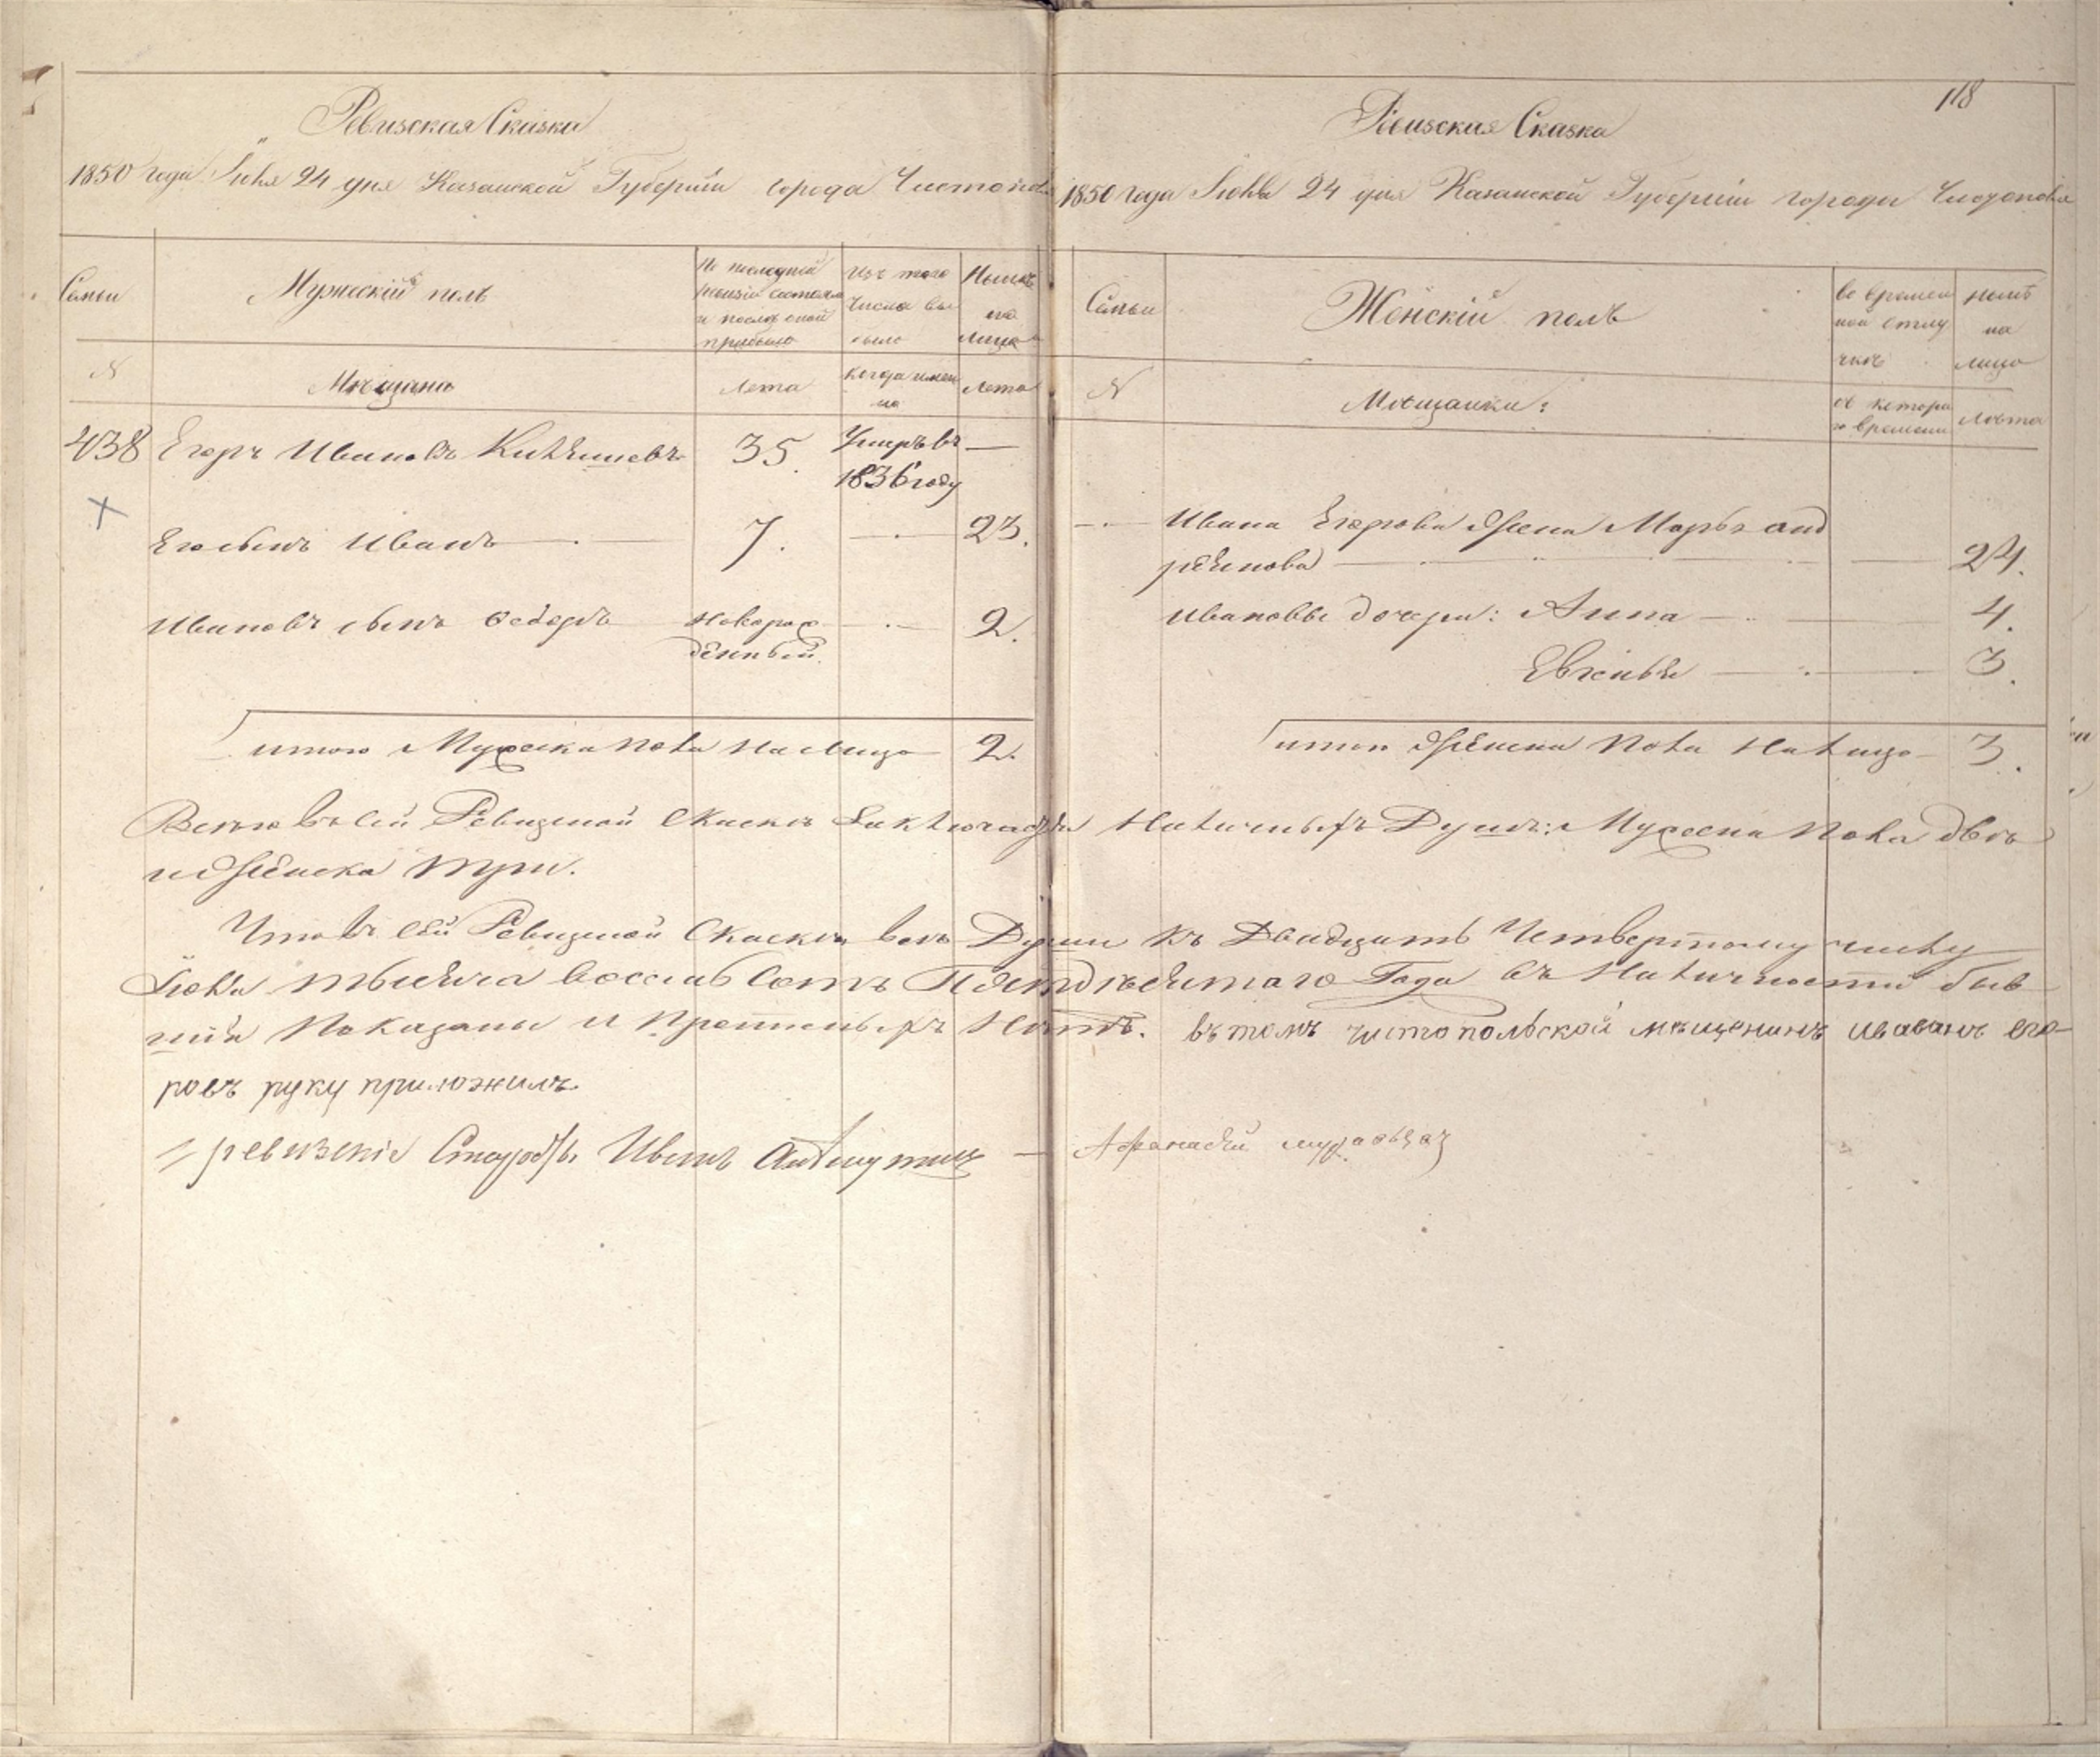 118
Ревизская Сказка
1850 года Іюня 24 дня Казанской Губерніи города Чистополя
Семьи
Мужескій полъ
По последней
ревизіи состояло
и после оной
прибыло
Изъ того
числа вы
было
Ныне
на
лицо
N
Мещане
Лета
когда имен
но
Лета
438 Егоръ Ивановъ 35. Умръ въ —
1836 году
Его сынъ Иванъ 7. 23.
Ивановъ сынъ Федоръ Новорож
денный. 2.
итого Мужеска пола На лицо 2.
Ревизская Сказка
1850 года Іюня 24 дня Казанской Губерніи города Чистополя
Семьи
Женскій полъ
во времен
ной отлу
чке
ныне
на
лицо
N
Мещанки:
съ котора
го времени
Лета
Ивана Егорова жена Марья Анд
реянова 24.
Ивановы дочери: Анна 4.
Евгенья 3.
итого Женска пола На лицо 3.
Всего въ сей Ревизкой Скаске заключается Наличныхъ Душъ: Мужеска пола две
и Женска три.
Что въ сей Ревизкой Скаске все Души къ Двадцать Четвертому числу
Іюня тысяча восемь сотъ Пятдесятаго Года въ Наличности быв
шія Показаны и Прописныхъ Нетъ. въ томъ чистопольской мещенинъ иваанъ его
ровъ руку приложилъ
ревизскіе Старосты Иванъ — Афанасей